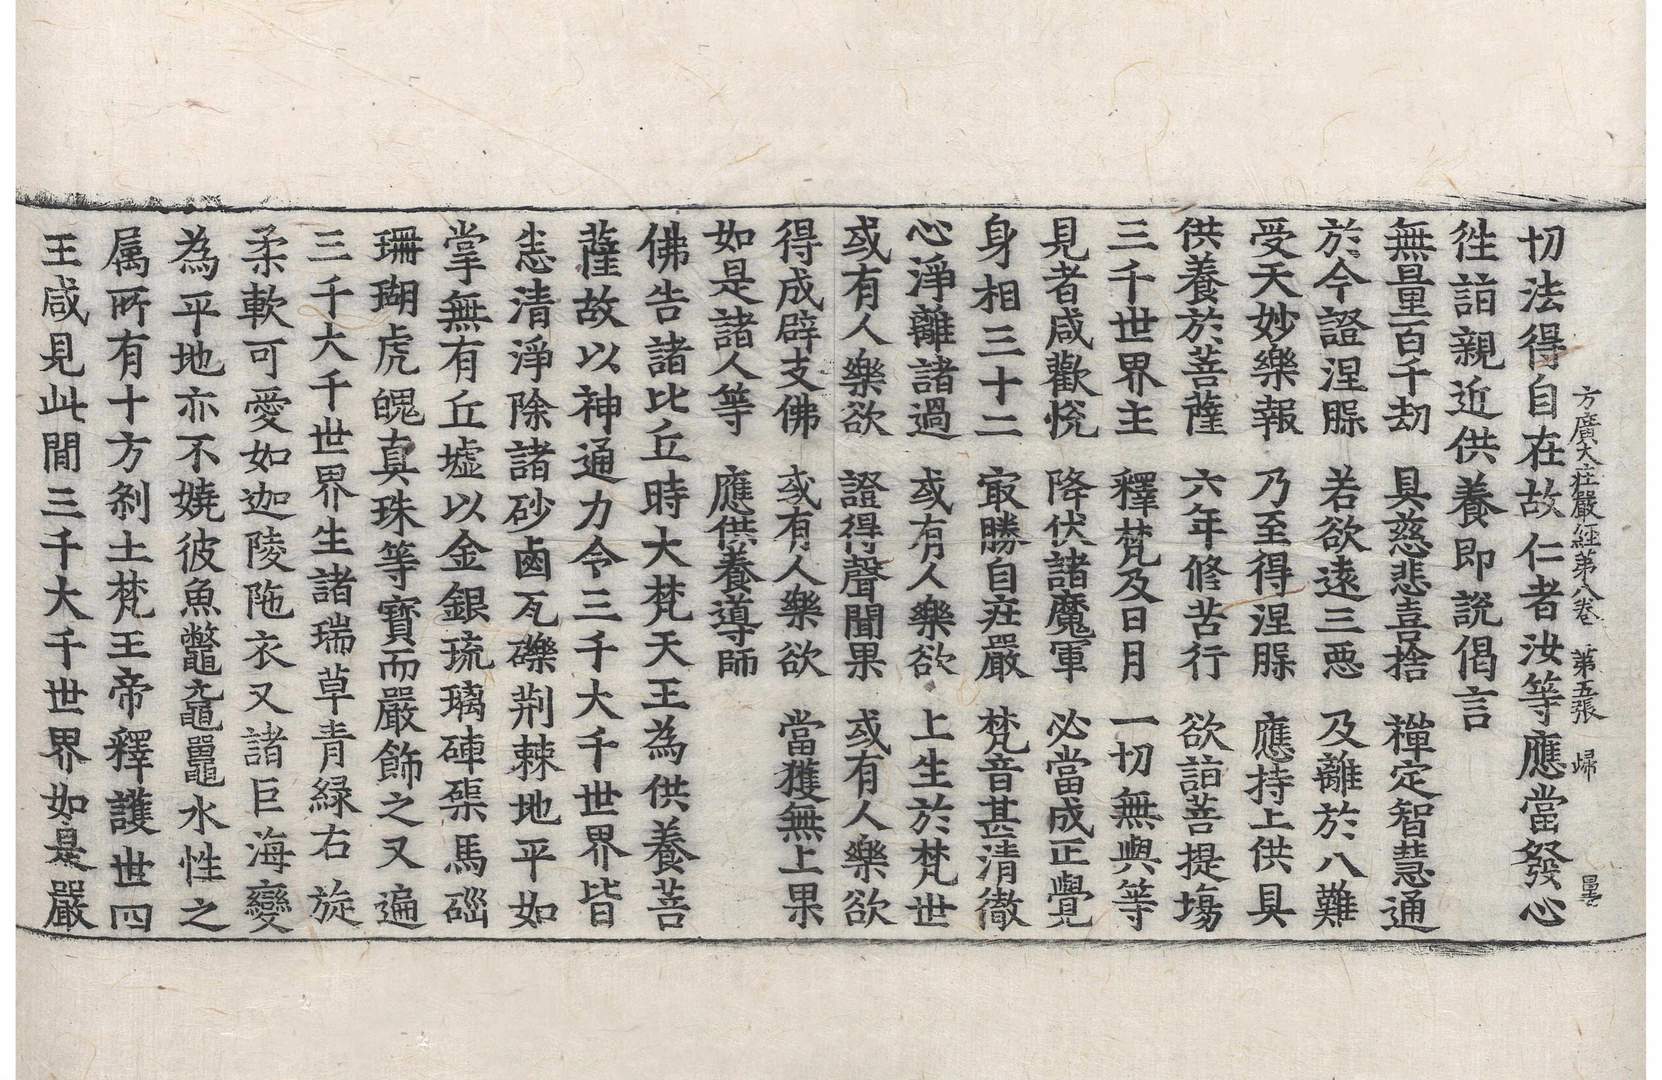 方廣大莊嚴經第八卷 第五張 㱕
切法得自在故仁者汝等應當發心
徃詣親近供養即說偈言
無量百千劫 具慈悲喜捨 禪定智慧通
於今證涅槃 若欲遠三惡 及離於八難
受天妙樂報 乃至得涅槃 應持上供具
供養於菩薩 六年修苦行 欲詣菩提場
三千世界主 釋梵及日月 一切無與等
見者咸歡悅 降伏諸魔軍 必當成正覺
身相三十二 㝡勝自莊嚴 梵音甚清徹
心淨離諸過 或有人樂欲 上生於梵世
或有人樂欲 證得聲聞果 或有人樂欲
得成辟支佛 或有人樂欲 當獲無上果
如是諸人等 應供養導師
佛告諸比丘時大梵天王為供養菩
薩故以神通力令三千大千世界皆
悉清淨除諸砂鹵瓦礫荊棘地平如
掌無有丘墟以金銀琉璃硨磲馬碯
珊瑚虎魄真珠等寶而嚴飾之又遍
三千大千世界生諸瑞草青綠右旋
柔軟可愛如迦陵陁衣又諸巨海變
為平地亦不嬈彼魚鼈黿鼉水性之
属所有十方刹土梵王帝釋護世四
王咸見此間三千大千世界如是嚴